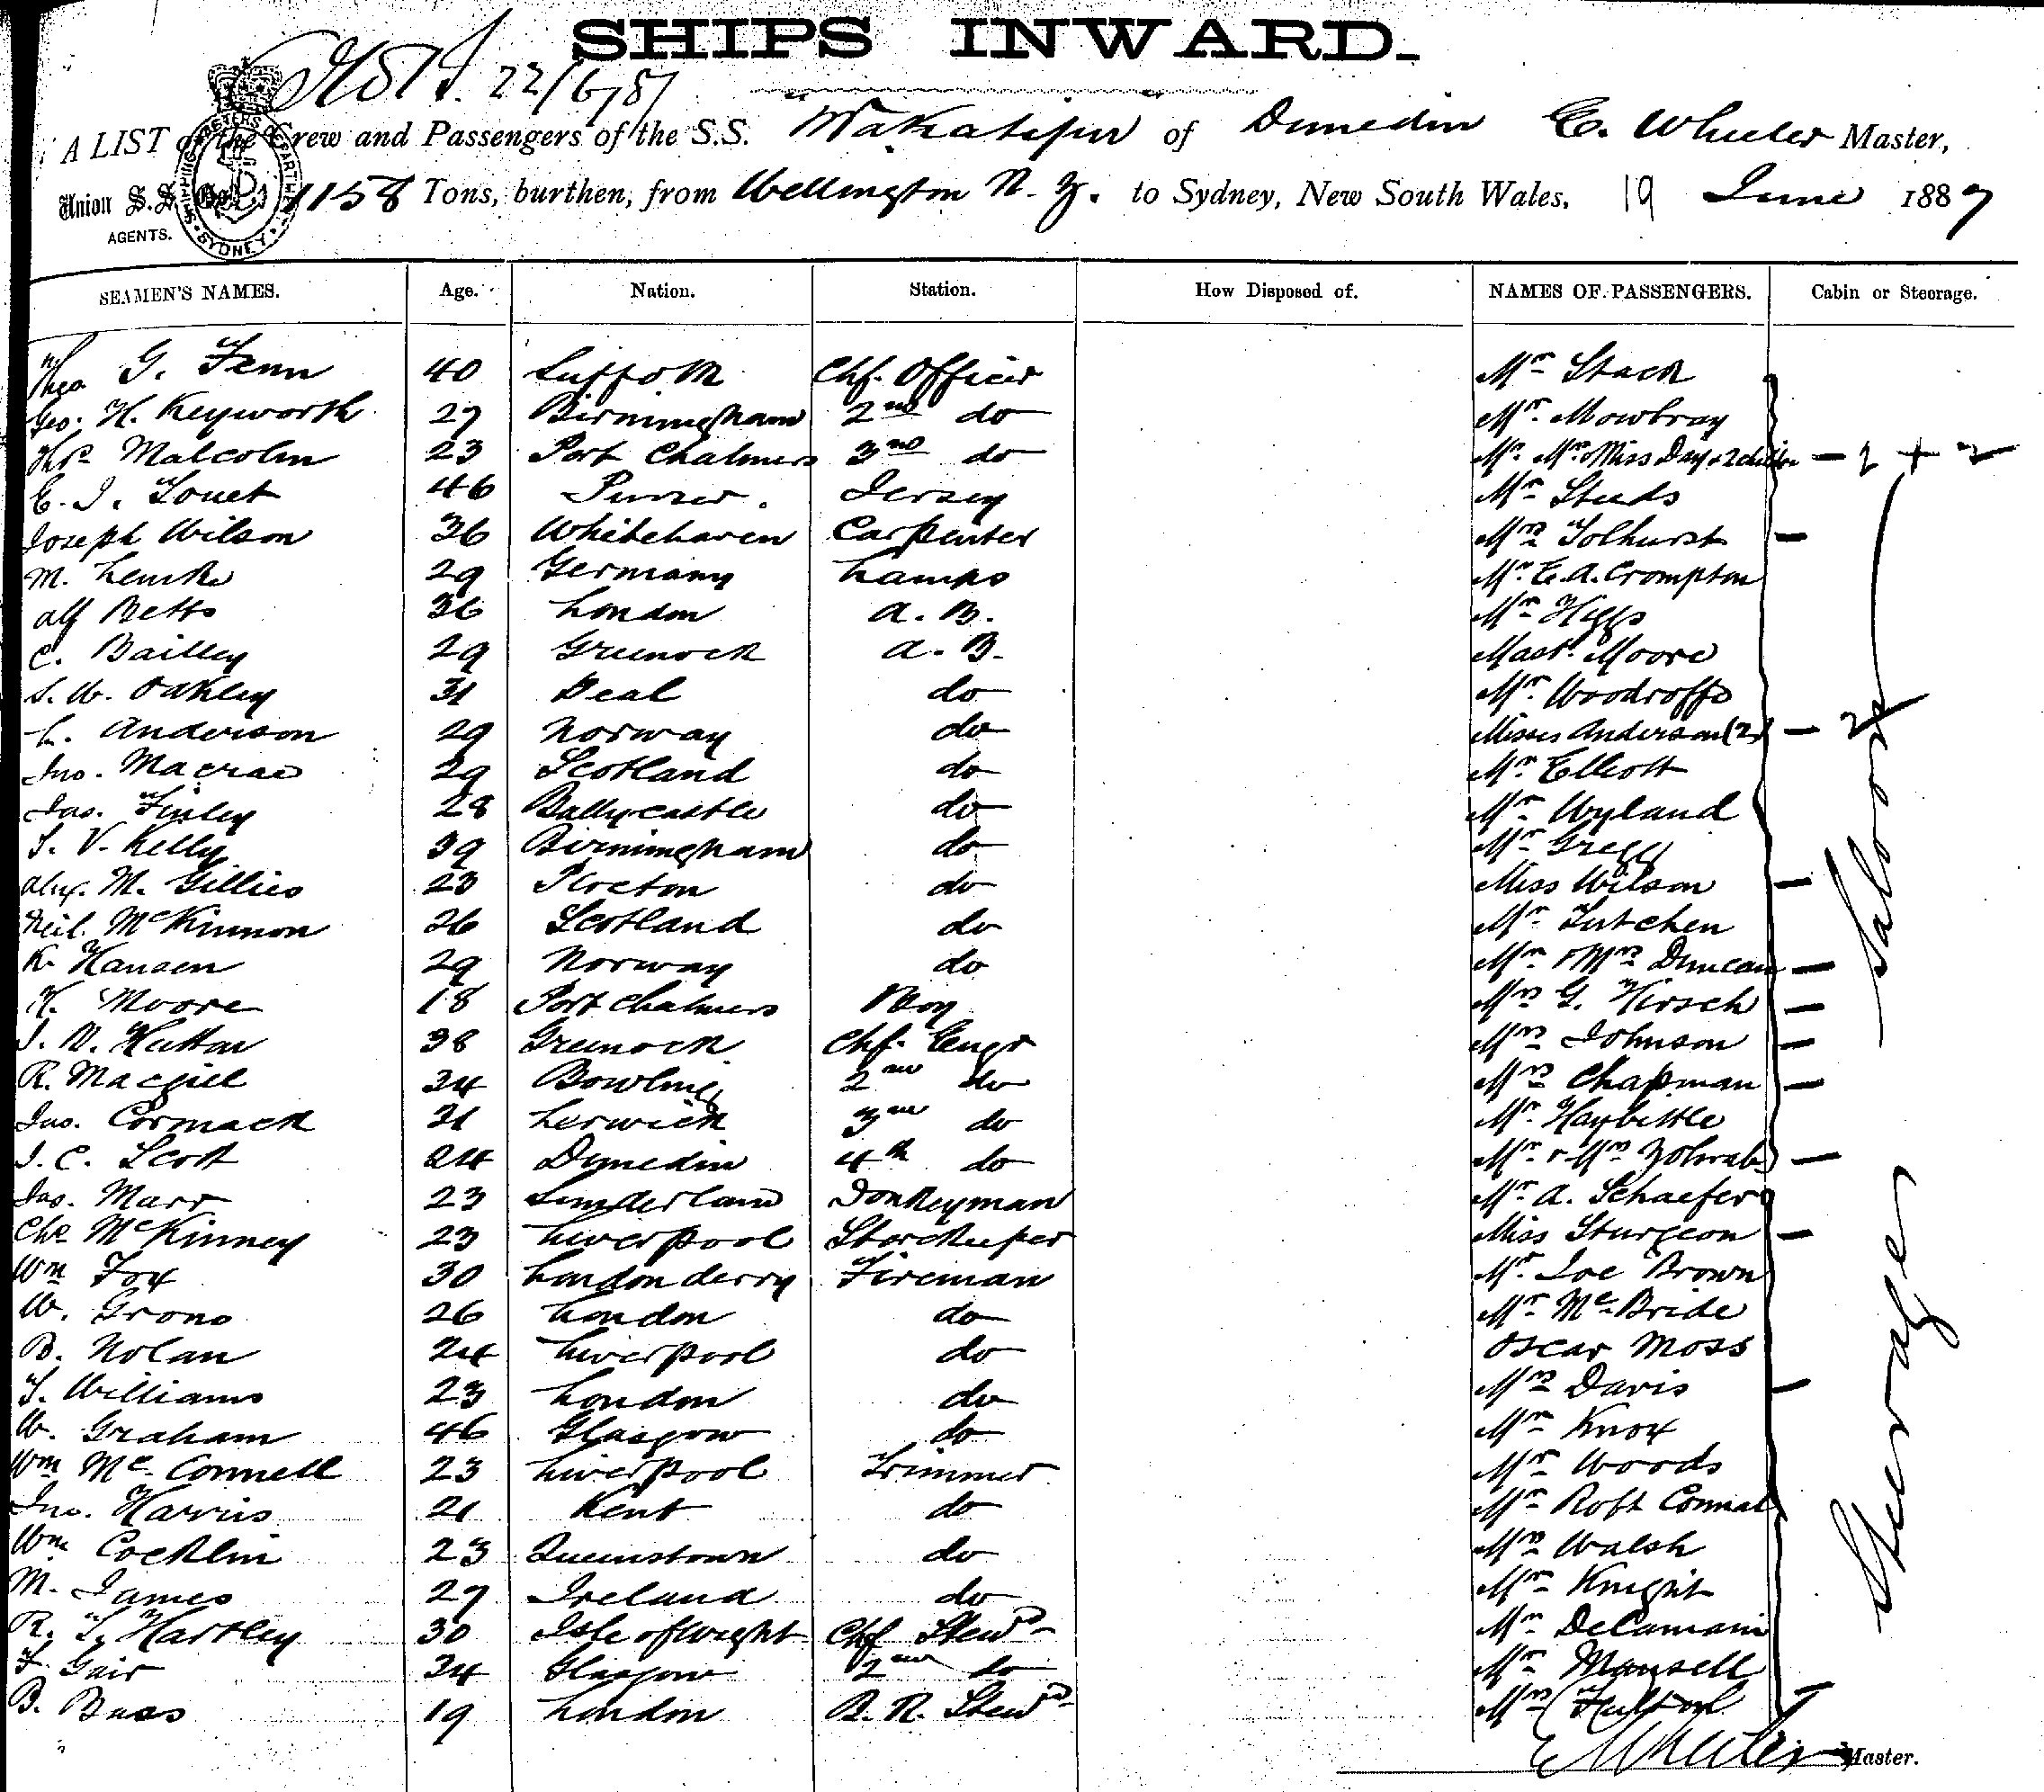 SHIPS INWARD.
22/6/87
A LIST of the Crew and Passengers of the S.S. Wakatipu of Dunedin E. Wheeler Master,
Union S.S. Co. 1158 Tons, burthen, from Wellington N. Z. to Sydney, New South Wales, 19 June 1887
AGENTS.
SHIPPING MASTERS DEPARTMENT SYDNEY
SEAMEN'S NAMES. Age. Nation. Station. How Disposed of. NAMES OF PASSENGERS. Cabin or Steerage.
Theo G. Fenn 40 Suffolk Chf. Officer Mr Stack
Geo. H. Keyworth 27 Birmingham 2nd do Mr. Mowbray
Thos Malcolm 23 Port Chalmers 3rd do Mr. Mrs. Miss Day + 2 children - 2 + 2
E. J. Touet 46 Purser. Jersey Mr Steeds
Joseph Wilson 36 Whitehaven Carpenter Mrs Tolhurst -
M. Lemke 29 Germany Lamps Mr. E. A. Crompton
Alf Betts 36 London A. B. Mr Higgs
C. Bailley 29 Greenock A. B. Mast. Moore
S. W. Oakley 31 Deal do Mr. Woodroffe
L. Anderson 29 Norway do Misses Anderson (2) - 2
Jno. Macrae 29 Scotland do Mr. Elliott
Jas. Finley 28 Ballycastle do Mr. Wyland
T. V. Kelly 39 Birmingham do Mr. Gregg
Alex. M. Gillies 23 Plocton do Miss Wilson -
Neil. McKinnon 26 Scotland do Mr. Tutchen
K. Hansen 29 Norway do Mr. & Mrs Duncan -
H. Moore 18 Port Chalmers Boy Mrs G. Hirsch -
J. N. Hutton 38 Greenock Chf. Engr Mrs Johnson -
R. Macgill 34 Bowling 2nd do Mrs Chapman -
Jno. Cormack 31 Lerwick 3rd do Mr. Haybittle
J. C. Scott 24 Dunedin 4th do Mr. & Mrs Zohrab -
Saloon
Jas. Marr 23 Sunderland Donkeyman Mr A. Schaefer
Chs McKinney 23 Liverpool Storekeeper Miss Sturgeon -
Wm Fox 30 Londonderry Fireman Mr. Joe Brown
W. Grono 26 London do Mr McBride
B. Nolan 24 Liverpool do Oscar Moss
T. Williams 23 London do Mrs Davis -
W. Graham 46 Glasgow do Mr Knox
Wm McConnell 23 Liverpool Trimmer Mr Woods
Jno. Harris 21 Kent do Mr Robt Connal
Wm Cocklin 23 Queenstown do Mrs Walsh
M. James 27 Ireland do Mr Knight
R. T. Hartley 30 Isle of Wight Chf Stewd Mr DeCamani
F. Gair 34 Glasgow 2nd do Mr Mansell
B. Bass 19 London B. R. Stewd Mrs Fulton
Steerage
E Wheeler Master.